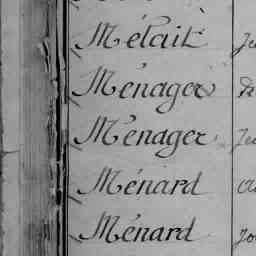 Métait
Ménager
Ménager
Ménard
Ménard